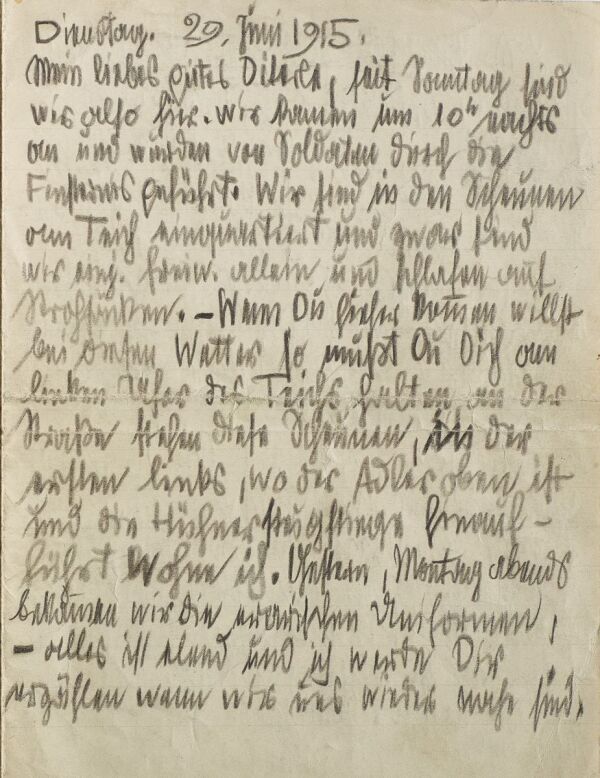 Dienstag. 29. Juni 1915.
Mein liebes gutes Diterle, seit Sonntag sind
wir also hier. wir kamen um 10h nachts
an und wurden von Soldaten durch die
Finsternis geführt. Wir sind in den Scheunen
am Teich einquartiert und zwar sind
wir einj. freiw. allein und schlafen auf
Strohsäcken. – Wenn Du hieher kom̄en willst
bei diesem Wetter so mußt Du Dich am
linken Ufer des Teichs halten, an der
Straße stehen diese Scheunen, in der
ersten links, wo der Adler oben ist
und die Hühnersteigstiege hinauf-
führt wohne ich. Gestern, Montag abends
bekamen wir die Uniformen,
– alles ist elend und ich werde Dir
erzählen wenn wir uns wieder nahe sind.